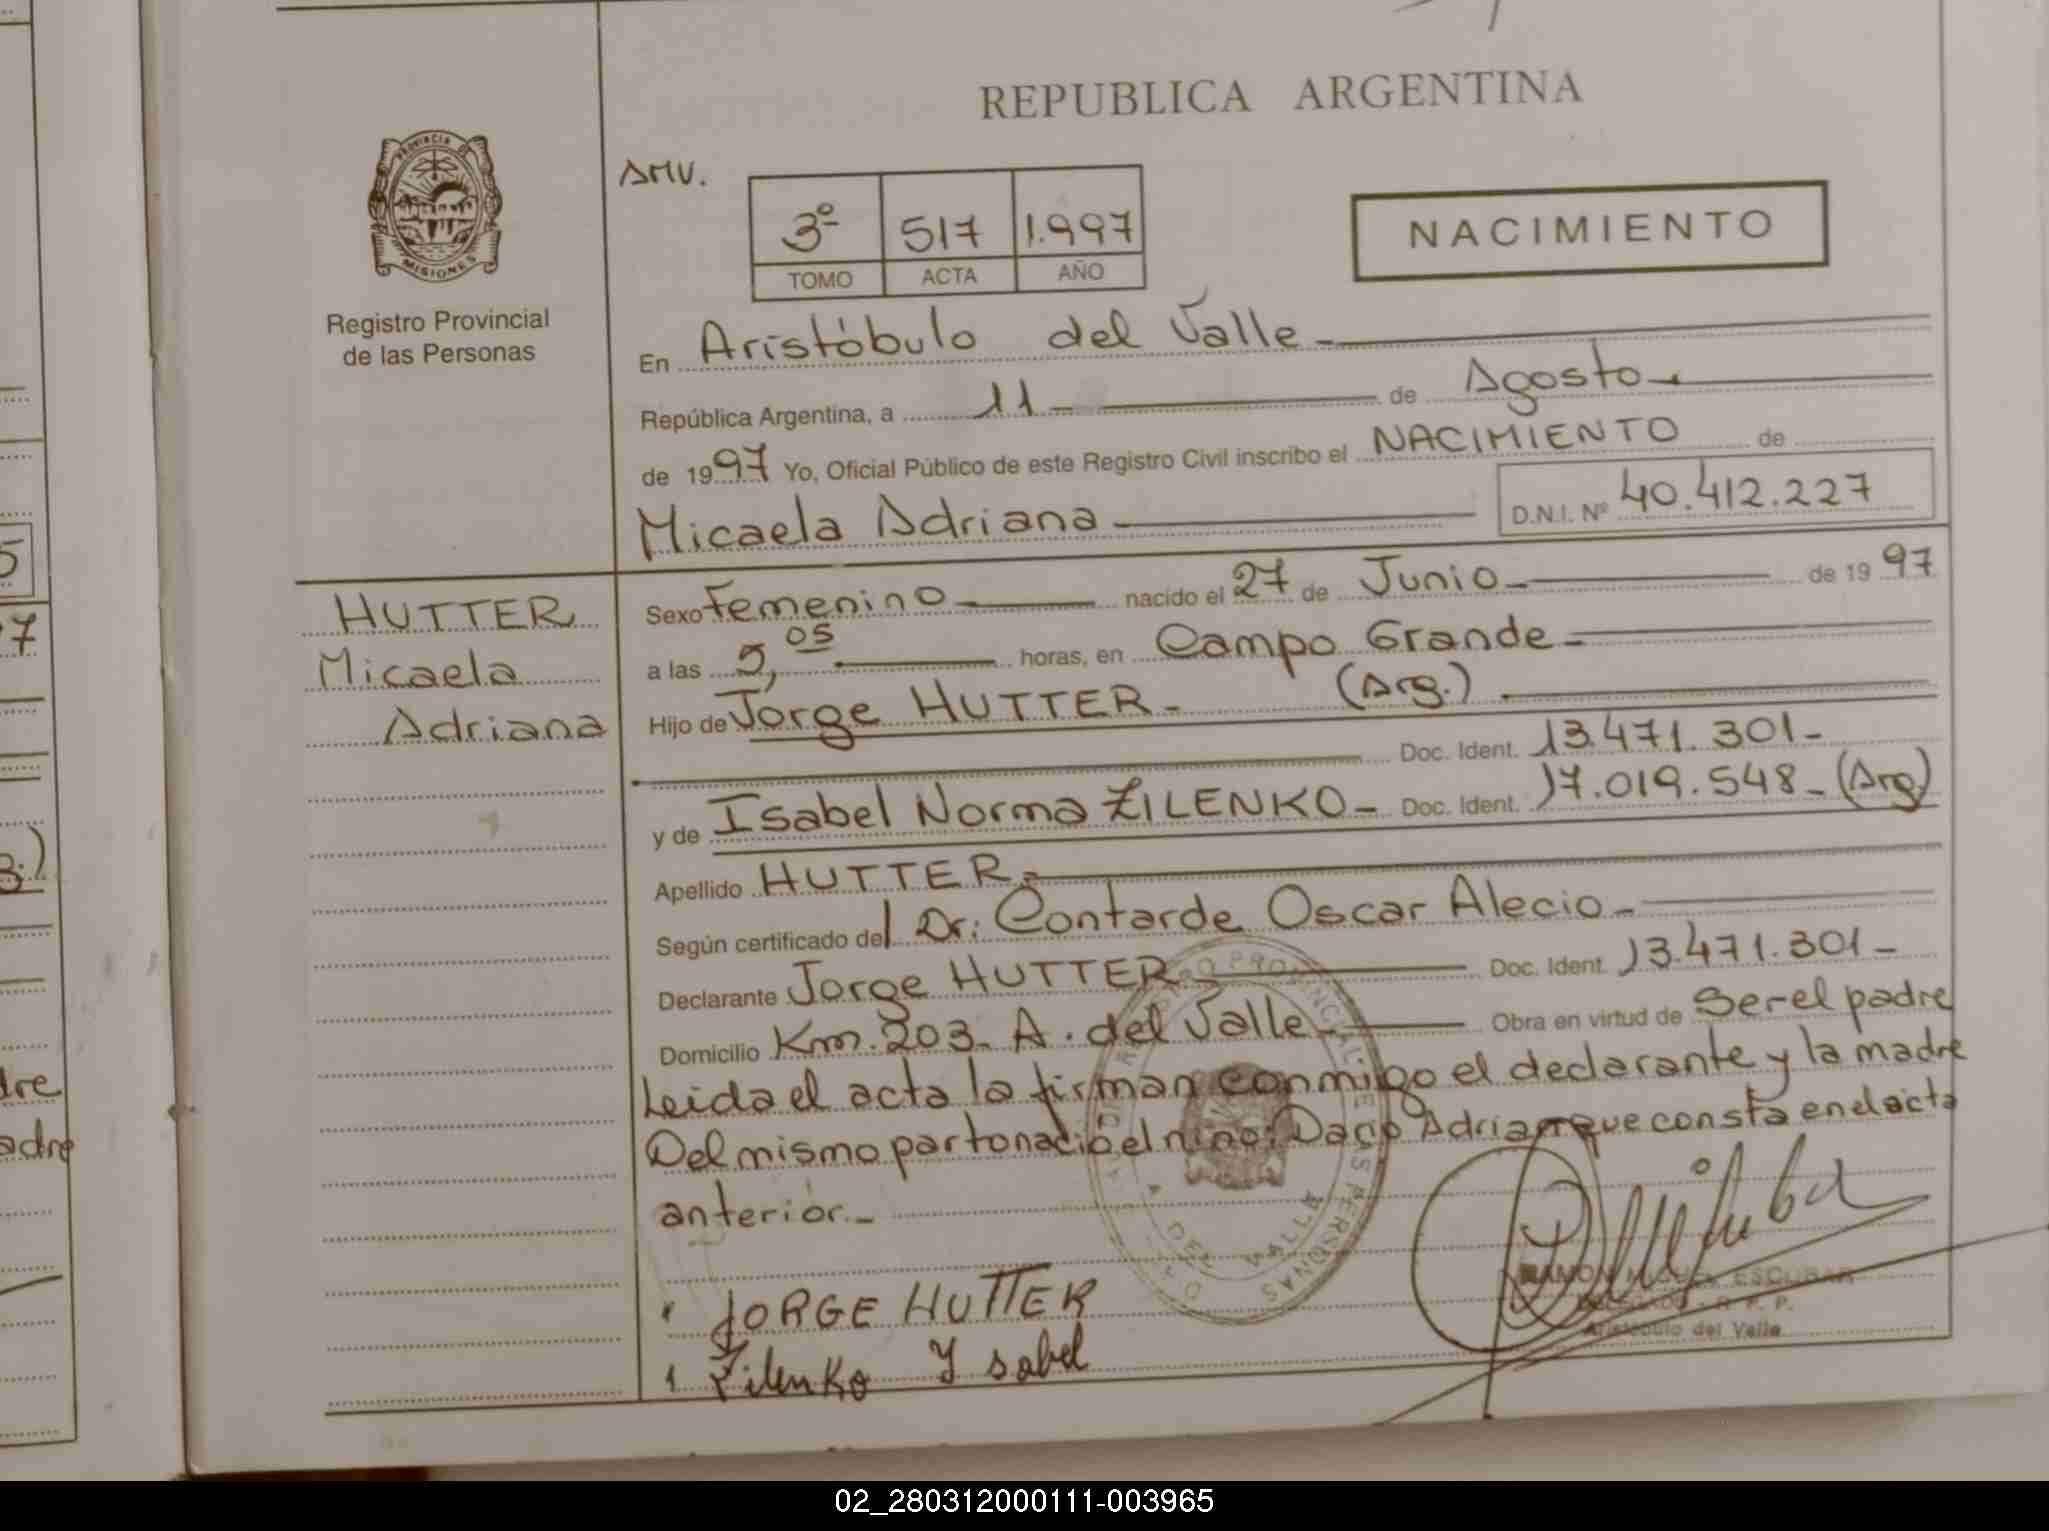 REPUBLICA ARGENTINA
AMV.
3º 517 1.997
TOMO ACTA AÑO
NACIMIENTO
PROVINCIA DE
MISIONES
Registro Provincial
de las Personas
En Aristóbulo del Valle -
República Argentina, a 11 - de Agosto -
de 1997 Yo, Oficial Público de este Registro Civil inscribo el NACIMIENTO de
Micaela Adriana - D.N.I. Nº 40.412.227
HUTTER
Micaela
Adriana
Sexo Femenino - nacido el 27 de Junio - de 1997
a las 5,05 horas, en Campo Grande -
Hijo de Jorge HUTTER - (Arg.)
Doc. Ident. 13.471.301 -
y de Isabel Norma ZILENKO - Doc. Ident. 17.019.548 - (Arg)
Apellido HUTTER -
Según certificado del Dr: Contarde Oscar Alecio -
Declarante Jorge HUTTER - Doc. Ident. 13.471.301 -
Domicilio Km. 203 - A. del Valle - Obra en virtud de Ser el padre
Leida el acta la firman conmigo el declarante y la madre
Del mismo parto nacio el niño: Dario Adrian que consta en el acta
anterior. -
JORGE HUTTER
Zilenko Ysabel
RAMON MIGUEL ESCOBAR
DELEGADO - R. P. P.
Aristóbulo del Valle
5
7
3.)
dre
adre
02_280312000111-003965